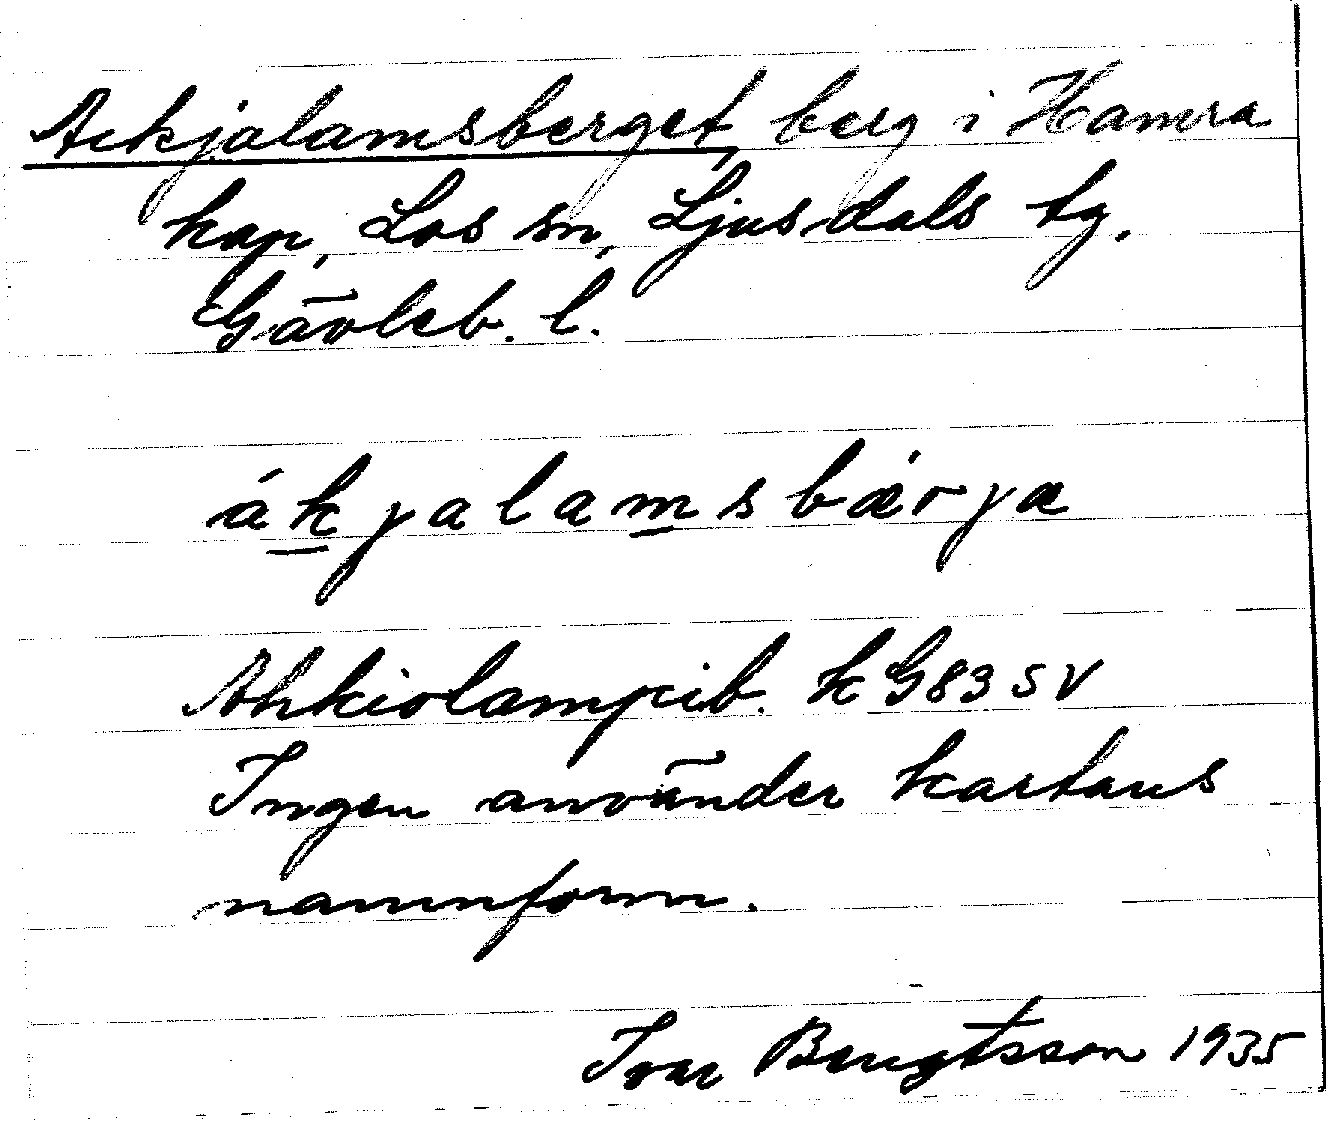 Ackjalamsberget, berg i Hamra
kap, Los sn, Ljusdals tg,
Gävleb. l.
ákjalamsbǽrjæ
Ahkiolampib. k G83 SV
Ingen använder kartans
namnform.
Ivar Bengtsson 1935